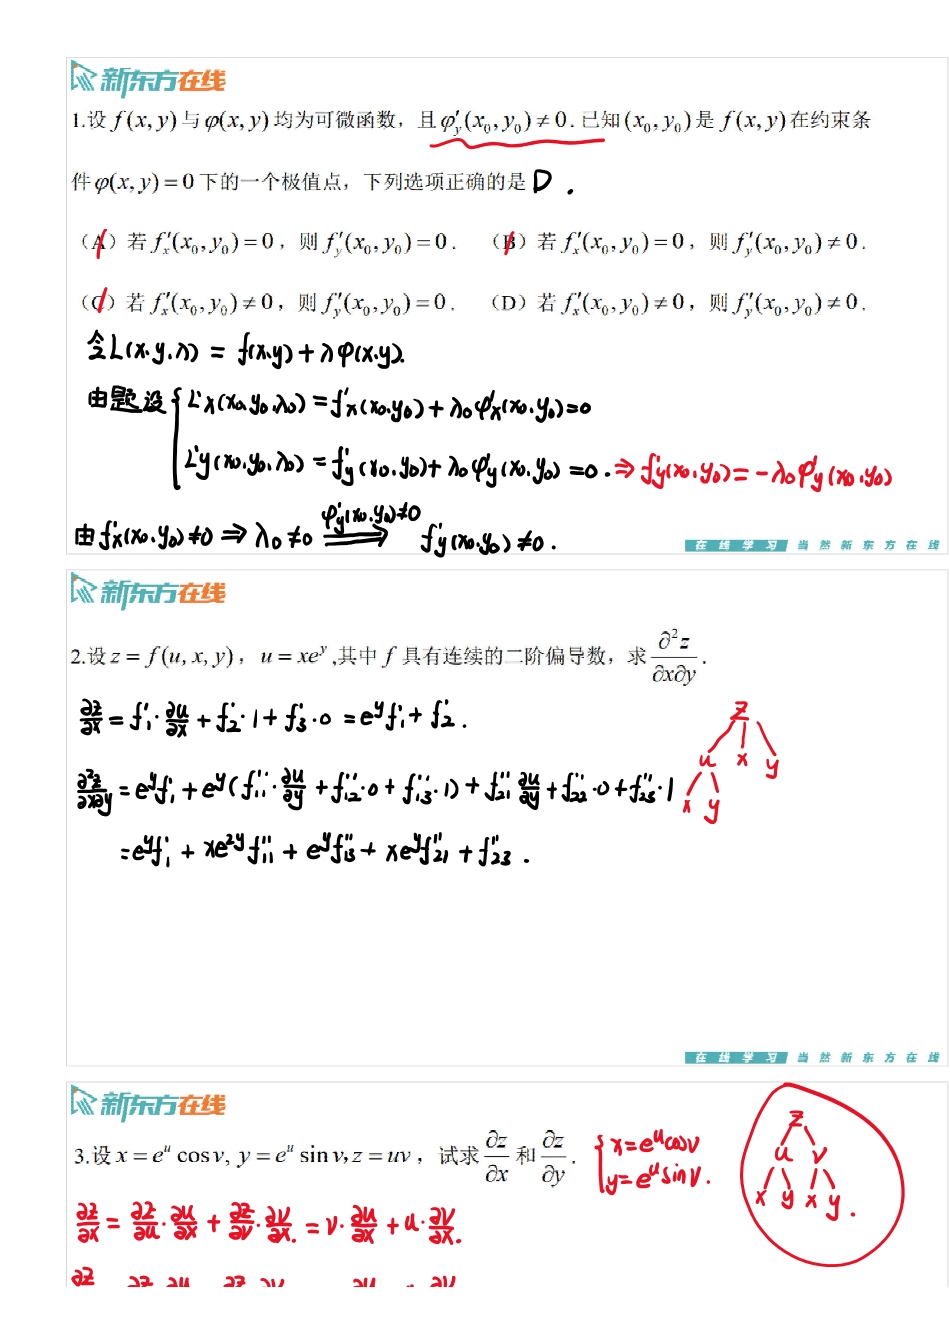 新东方在线
1.设 f(x,y) 与 φ(x,y) 均为可微函数，且 φ′y(x₀,y₀)≠0. 已知 (x₀,y₀) 是 f(x,y) 在约束条
件 φ(x,y)=0 下的一个极值点，下列选项正确的是 D .
（A）若 f′x(x₀,y₀)=0，则 f′y(x₀,y₀)=0. （B）若 f′x(x₀,y₀)=0，则 f′y(x₀,y₀)≠0.
（C）若 f′x(x₀,y₀)≠0，则 f′y(x₀,y₀)=0. （D）若 f′x(x₀,y₀)≠0，则 f′y(x₀,y₀)≠0.
令L(x.y.λ) = f(x.y)+λφ(x.y).
由题设 { L′x(x₀.y₀.λ₀)=f′x(x₀.y₀)+λ₀φ′x(x₀.y₀)=0
L′y(x₀.y₀.λ₀)=f′y(x₀.y₀)+λ₀φ′y(x₀.y₀)=0. ⇒ f′y(x₀.y₀)=-λ₀φ′y(x₀.y₀)
由f′x(x₀.y₀)≠0 ⇒ λ₀≠0 φ′y(x₀.y₀)≠0 ⇒ f′y(x₀.y₀)≠0.
在线学习 当然新东方在线
新东方在线
2.设 z=f(u,x,y)，u=xeʸ,其中 f 具有连续的二阶偏导数，求 ∂²z/∂x∂y.
∂z/∂x = f′₁·∂u/∂x + f′₂·1 + f′₃·0 = eʸf′₁ + f′₂.
z
u x y
∂²z/∂x∂y = eʸf′₁ + eʸ(f″₁₁·∂u/∂y + f″₁₂·0 + f″₁₃·1) + f″₂₁∂u/∂y + f″₂₂·0 + f″₂₃·1
x y
= eʸf′₁ + xe²ʸf″₁₁ + eʸf″₁₃ + xeʸf″₂₁ + f″₂₃.
在线学习 当然新东方在线
新东方在线
3.设 x=eᵘcosv, y=eᵘsinv, z=uv，试求 ∂z/∂x 和 ∂z/∂y. { x=eᵘcosv
y=eᵘsinv.
z
u v
x y x y.
∂z/∂x = ∂z/∂u·∂u/∂x + ∂z/∂v·∂v/∂x. = v·∂u/∂x + u·∂v/∂x.